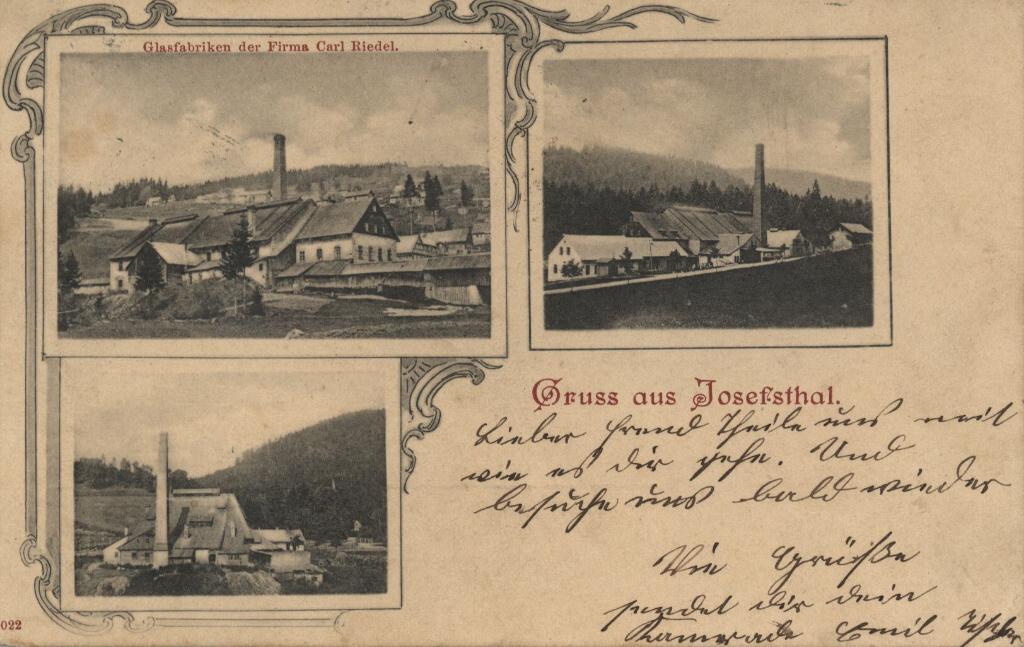 Glasfabriken der Firma Carl Riedel.
Gruss aus Josefsthal.
Lieber Freund Theile uns mit
wie es dir gehe. Und
besuche uns bald wieder
Vie Grüße
sendet dir dein
Kamerade Emil
022